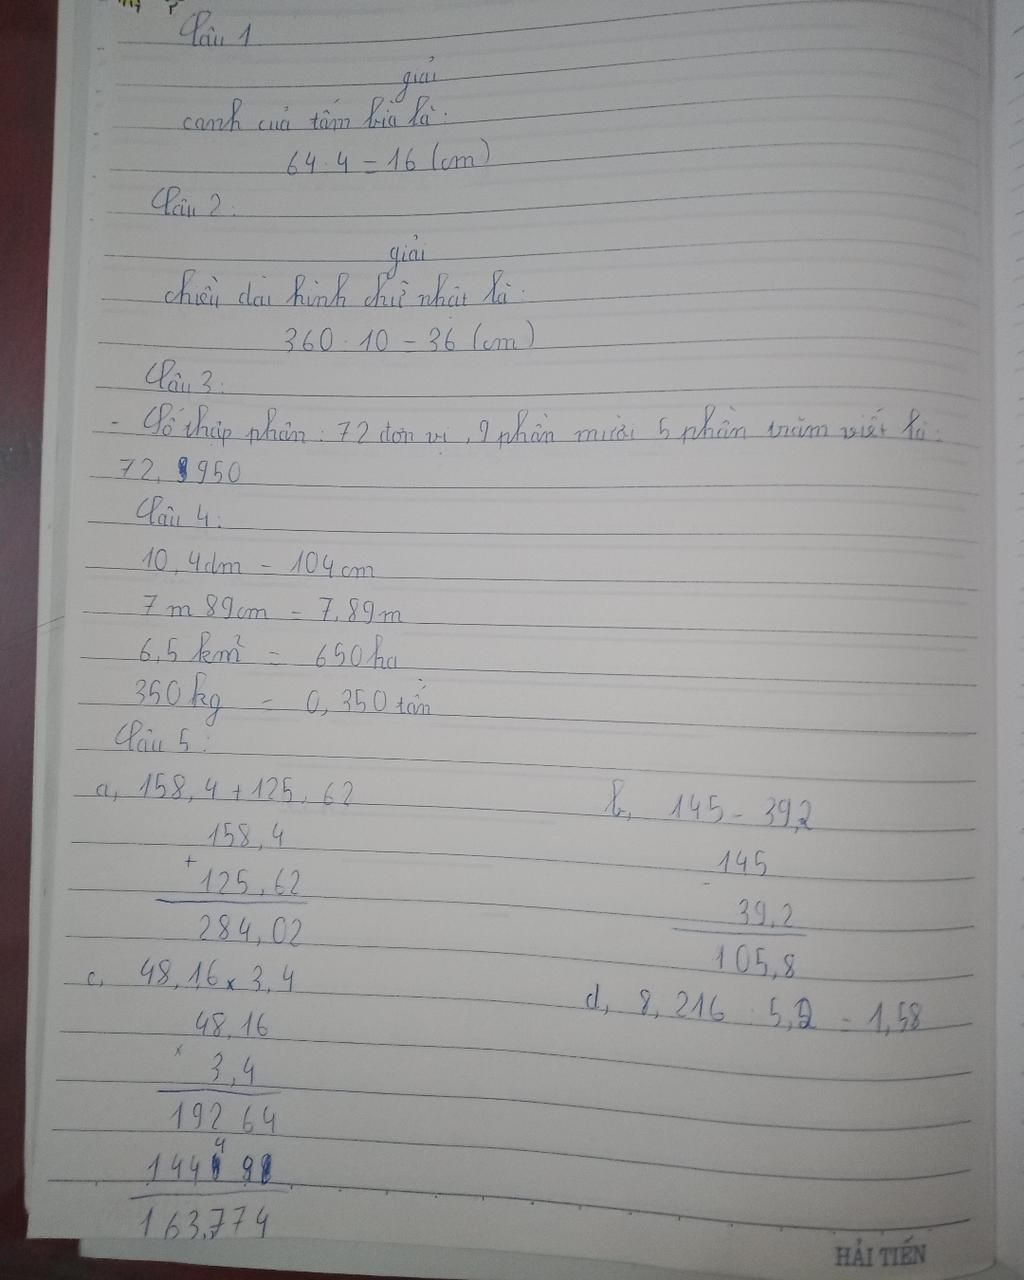 Câu 1
giải
canh của tấm bìa là:
64 : 4 = 16 (cm)
Câu 2:
giải
chiều dài hình chữ nhật là:
360 : 10 = 36 (cm)
Câu 3:
- Số thập phân: 72 đơn vị, 9 phần mười 5 phần trăm viết là:
72, 950
Câu 4:
10,4dm = 104cm
7m 89cm = 7,89m
6,5 km² = 650ha
350kg = 0,350 tấn
Câu 5:
a, 158,4 + 125,62 b, 145 - 39,2
158,4 145
+ -
125,62 39,2
284,02 105,8
c, 48,16 x 3,4 d, 8,216 : 5,2 = 1,58
48,16
x
3,4
192 64
4
144 9
163,774
HẢI TIẾN